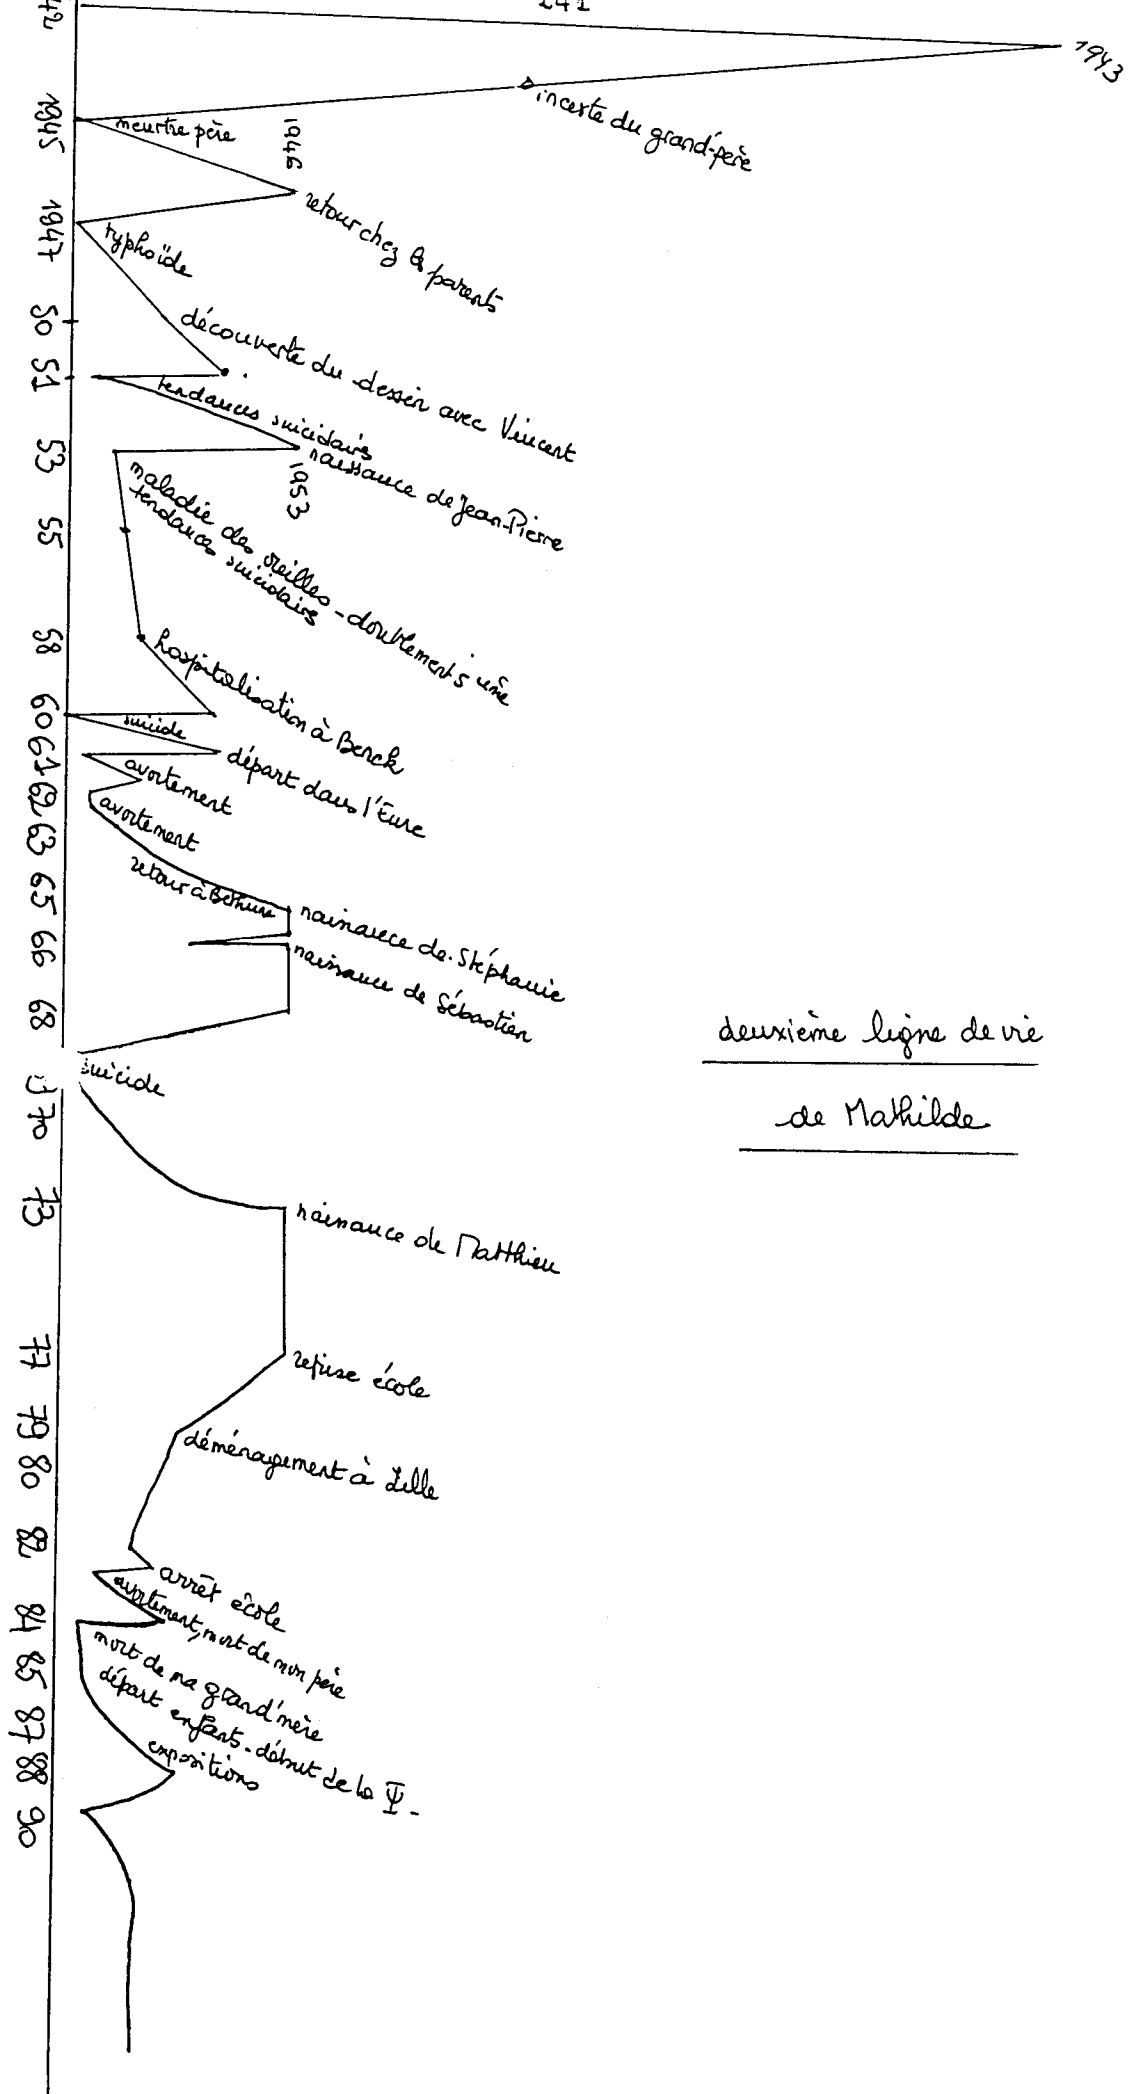 241
42
1943
inceste du grand-père
1945
meurtre père
1946
retour chez les parents
1947
typhoïde
50
découverte du dessin avec Vincent
51
tendances suicidaires
53
1953
naissance de Jean-Pierre
maladie des oreilles - doublement 5ième
tendances suicidaires
55
58
hospitalisation à Berck
60
suicide
61
départ dans l'Eure
avortement
62
avortement
63
retour à Béthune
65
naissance de Stéphanie
66
naissance de Sébastien
68
suicide
70
73
naissance de Matthieu
77
refuse école
79
déménagement à Lille
80
82
arrêt école
avortement, mort de mon père
84
mort de ma grand'mère
85
départ enfants - début de la Ψ -
87
expositions
88
90
deuxième ligne de vie
de Mathilde